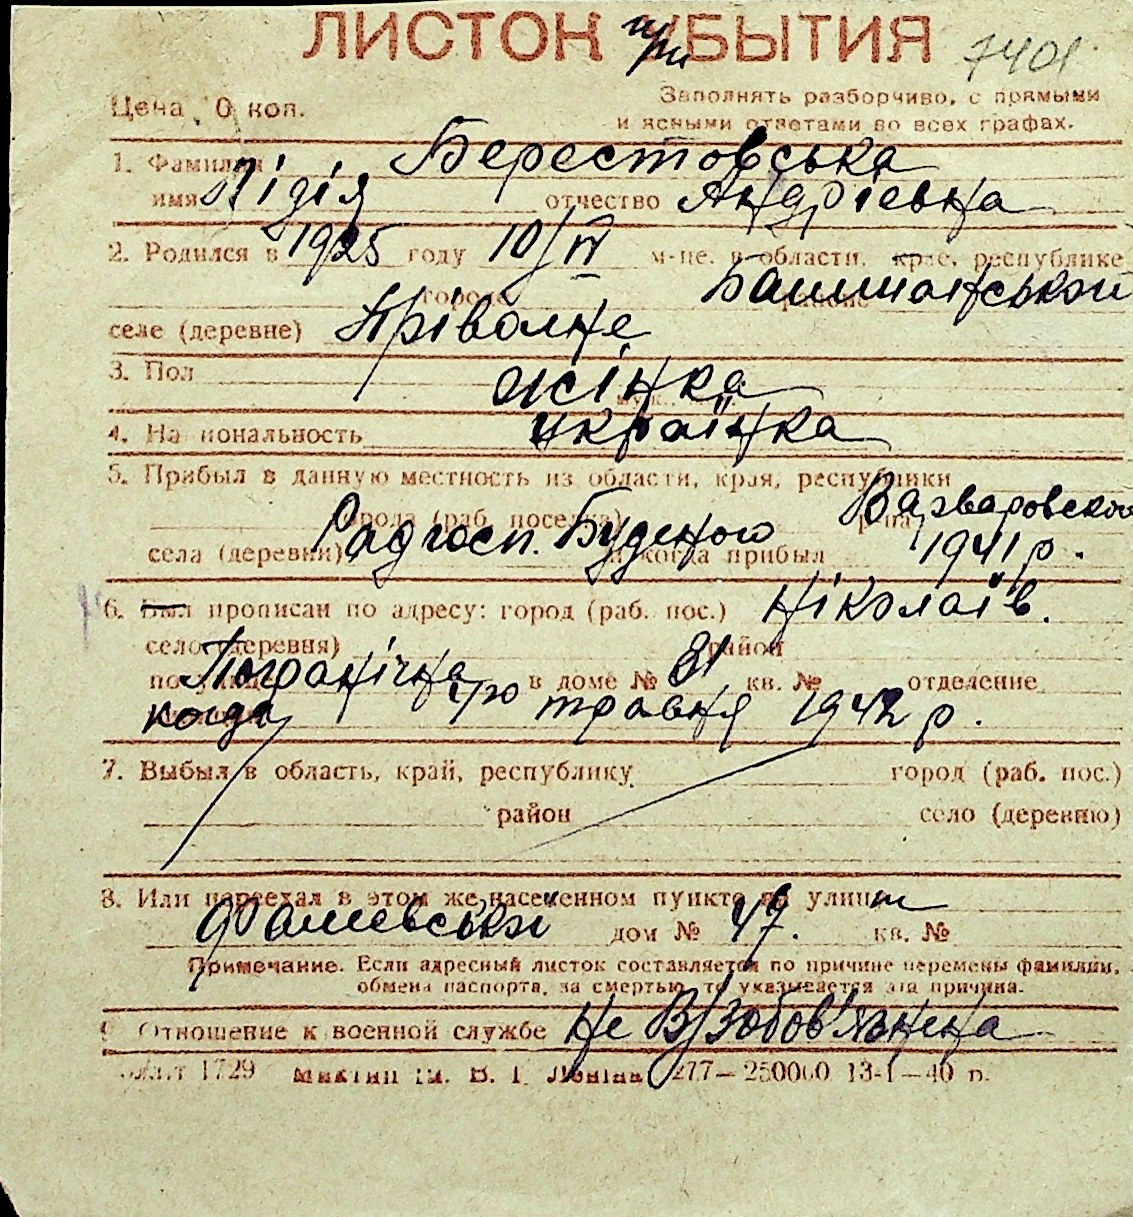 ЛИСТОК при УБЫТИЯ 7401
Цена 0 коп.
Заполнять разборчиво, с прямыми
и ясными ответами во всех графах.
1. Фамилия Берестовська
имя Лідія отчество Андріевна
2. Родился в 1925 году 10/IV м-це. в области, крае, республике
города Башташської районе
селе (деревне) Прівольне
3. Пол жінка
4. Национальность українка
5. Прибыл в данную местность из области, края, республики
города (раб. поселка) р-на Варваровского
села (деревни) Радгосп. Буденого и когда прибыл 1941 р.
6. Был прописан по адресу: город (раб. пос.) Ніколаїв.
село (деревня) район
по улице Погранічна в доме № 81 кв. № отделение
когда травня 1942 р.
7. Выбыл в область, край, республику город (раб. пос.)
район село (деревню)
8. Или переехал в этом же населенном пункте на улицу
дом № 49. кв. №
Примечание. Если адресный листок составляется по причине перемены фамилии,
обмена паспорта, за смертью, то указывается эта причина.
9 Отношение к военной службе не В/Зобов'язнена
1729 ім. В. І. Леніна 277—250000 13-I—40 р.